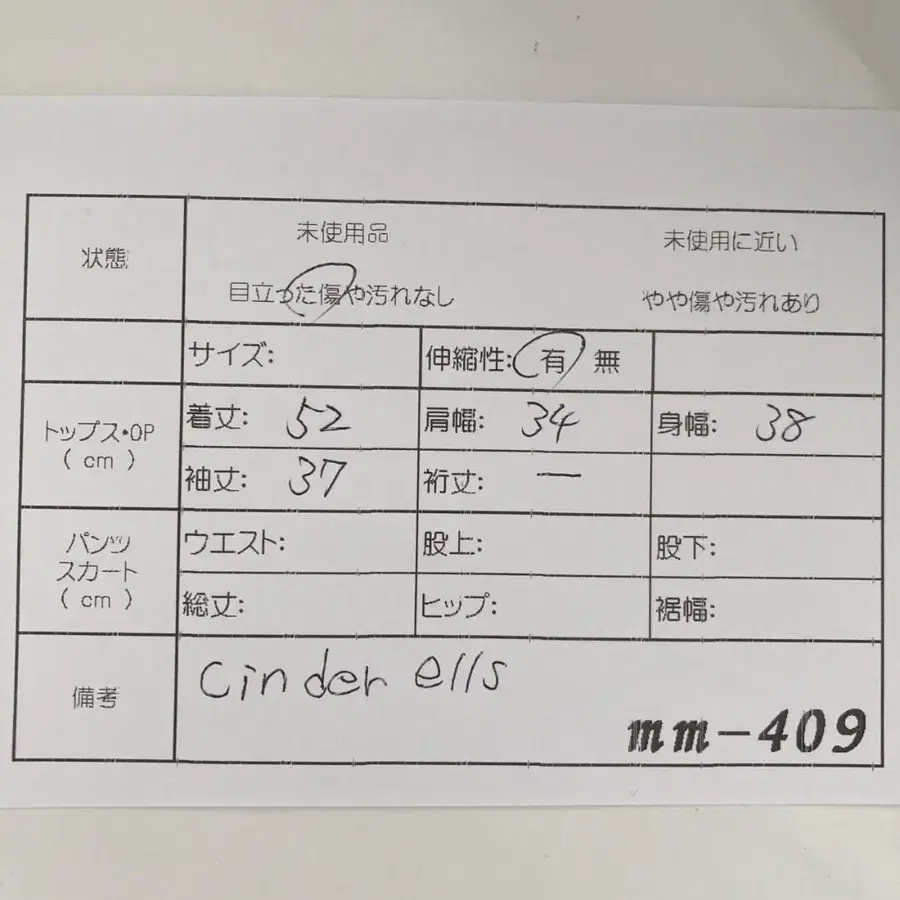 状態
未使用品 未使用に近い
目立った傷や汚れなし やや傷や汚れあり
サイズ: 伸縮性: 有 無
トップス・OP
( cm )
着丈: 52 肩幅: 34 身幅: 38
袖丈: 37 裄丈: ー
パンツ
スカート
( cm )
ウエスト: 股上: 股下:
総丈: ヒップ: 裾幅:
備考
cinder ells
mm-409